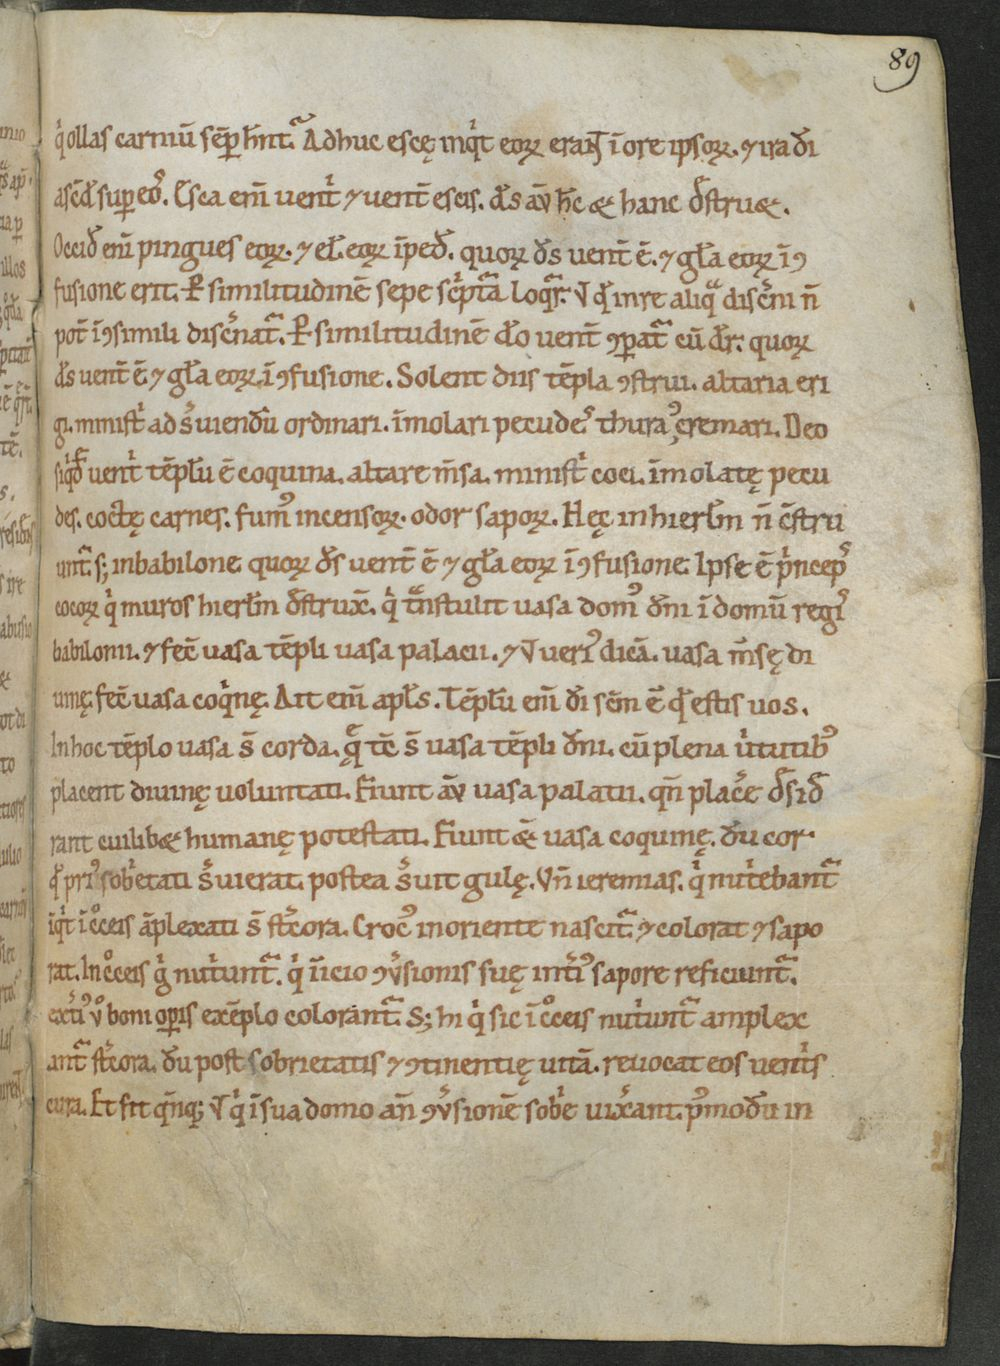 89
q̇ ollas carniū sēp hn̄t᷑. Adhuc escę inq̇t eoꝝ eranṫ ī ore ipsoꝝ. ⁊ ira d̄i
ascd̄ sup eoꝰ. Esca em̄ uentͥ ⁊ uent̄ escis. d̄s aū hc̄ & hanc d̄stru&.
Occid̄ em̄ pingues eoꝝ. ⁊ el̄. eoꝝ īped̄. quoꝝ d̄s uent̄ ē. ⁊ gl̄a eoꝝ īꝯ
fusione erit. Ꝑ similitudinē sepe sċpta᷑ loq᷑r. V qd̄ in re aliq̄ discͥni n̄
pot̄ īꝯsimili discͥnat᷑. Ꝑ similitudinē d̄o uent̄ ꝯpat᷑ cū dr̄. quoꝝ
d̄s uent̄ ē ⁊ gl̄a eoꝝ ī ꝯfusione. Solent diis tēpla ꝯstrui. altaria eri
gi. ministͥ ad s̄uiendū ordinari. īmolari pecudeꝰ thuraꝰ cremari. Deo
siq̇d̄ uentͥ tēplū ē coquina. altare m̄sa. ministͥ coci. īmolatę pecu
des. coctę carnes. fumꝰ incensoꝝ. odor sapoꝝ. Hęc in hierlm̄ n̄ ꝯ̄stru
unt᷑ s; in babilone quoꝝ d̄s uent̄ ē ⁊ gl̄a eoꝝ ī ꝯfusione. Ipse ē p̄ncepꝰ
cocoꝝ q̇ muros hierlm̄ d̄strux̄. q̇ tn̄stulit uasa domꝰ dn̄i ī domū regiꝰ
babilonii. ⁊ fec̄ uasa tēpli uasa palacii. ⁊ V ueriꝰ dicā. uasa m̄sę di
uinę. fec̄ uasa coq̇nę. Ait em̄ apl̄s. Tēplū em̄ d̄i sc̄m ē qd̄ estis uos.
In hoc tēplo uasa s̄ corda. q̄ tc̄ s̄ uasa tēpli dn̄i. cū plena uͥtutibꝰ
placent diuinę uoluntati. Fiunt aū uasa palatii. qn̄ placͥe d̄sid̄
rant cuilib& humanę potestati. Fiunt &̄ uasa coquinę. dū cor
qd̄ priꝰ sobͥetati s̄uierat. postea s̄uit gulę. Vn̄ ieremias. q̇ nutͥebant᷑
īq̇t ī cͦceis āplexati s̄ stͥcora. Crocꝰ in oriente nascit᷑. ⁊ colorat ⁊ sapo
rat. In cͦceis g̊ nutͥunt᷑. q̇ īicio ꝯūsionis suę intͥiꝰ sapore reficiunt᷑.
extͥiꝰ vͦ boni opis exēplo colorant᷑. S; hi q̇ sic ī cͦceis nutͥunt᷑ amplex
ant᷑ stͥcora. dū post sobrietatis ⁊ ꝯtinentię uitā. reuocat eos uentͥs
cura. Et fit qn̄q;. V q̇ ī sua domo an̄ ꝯūsionē sobͥe uixͥant. pꝰmodū in